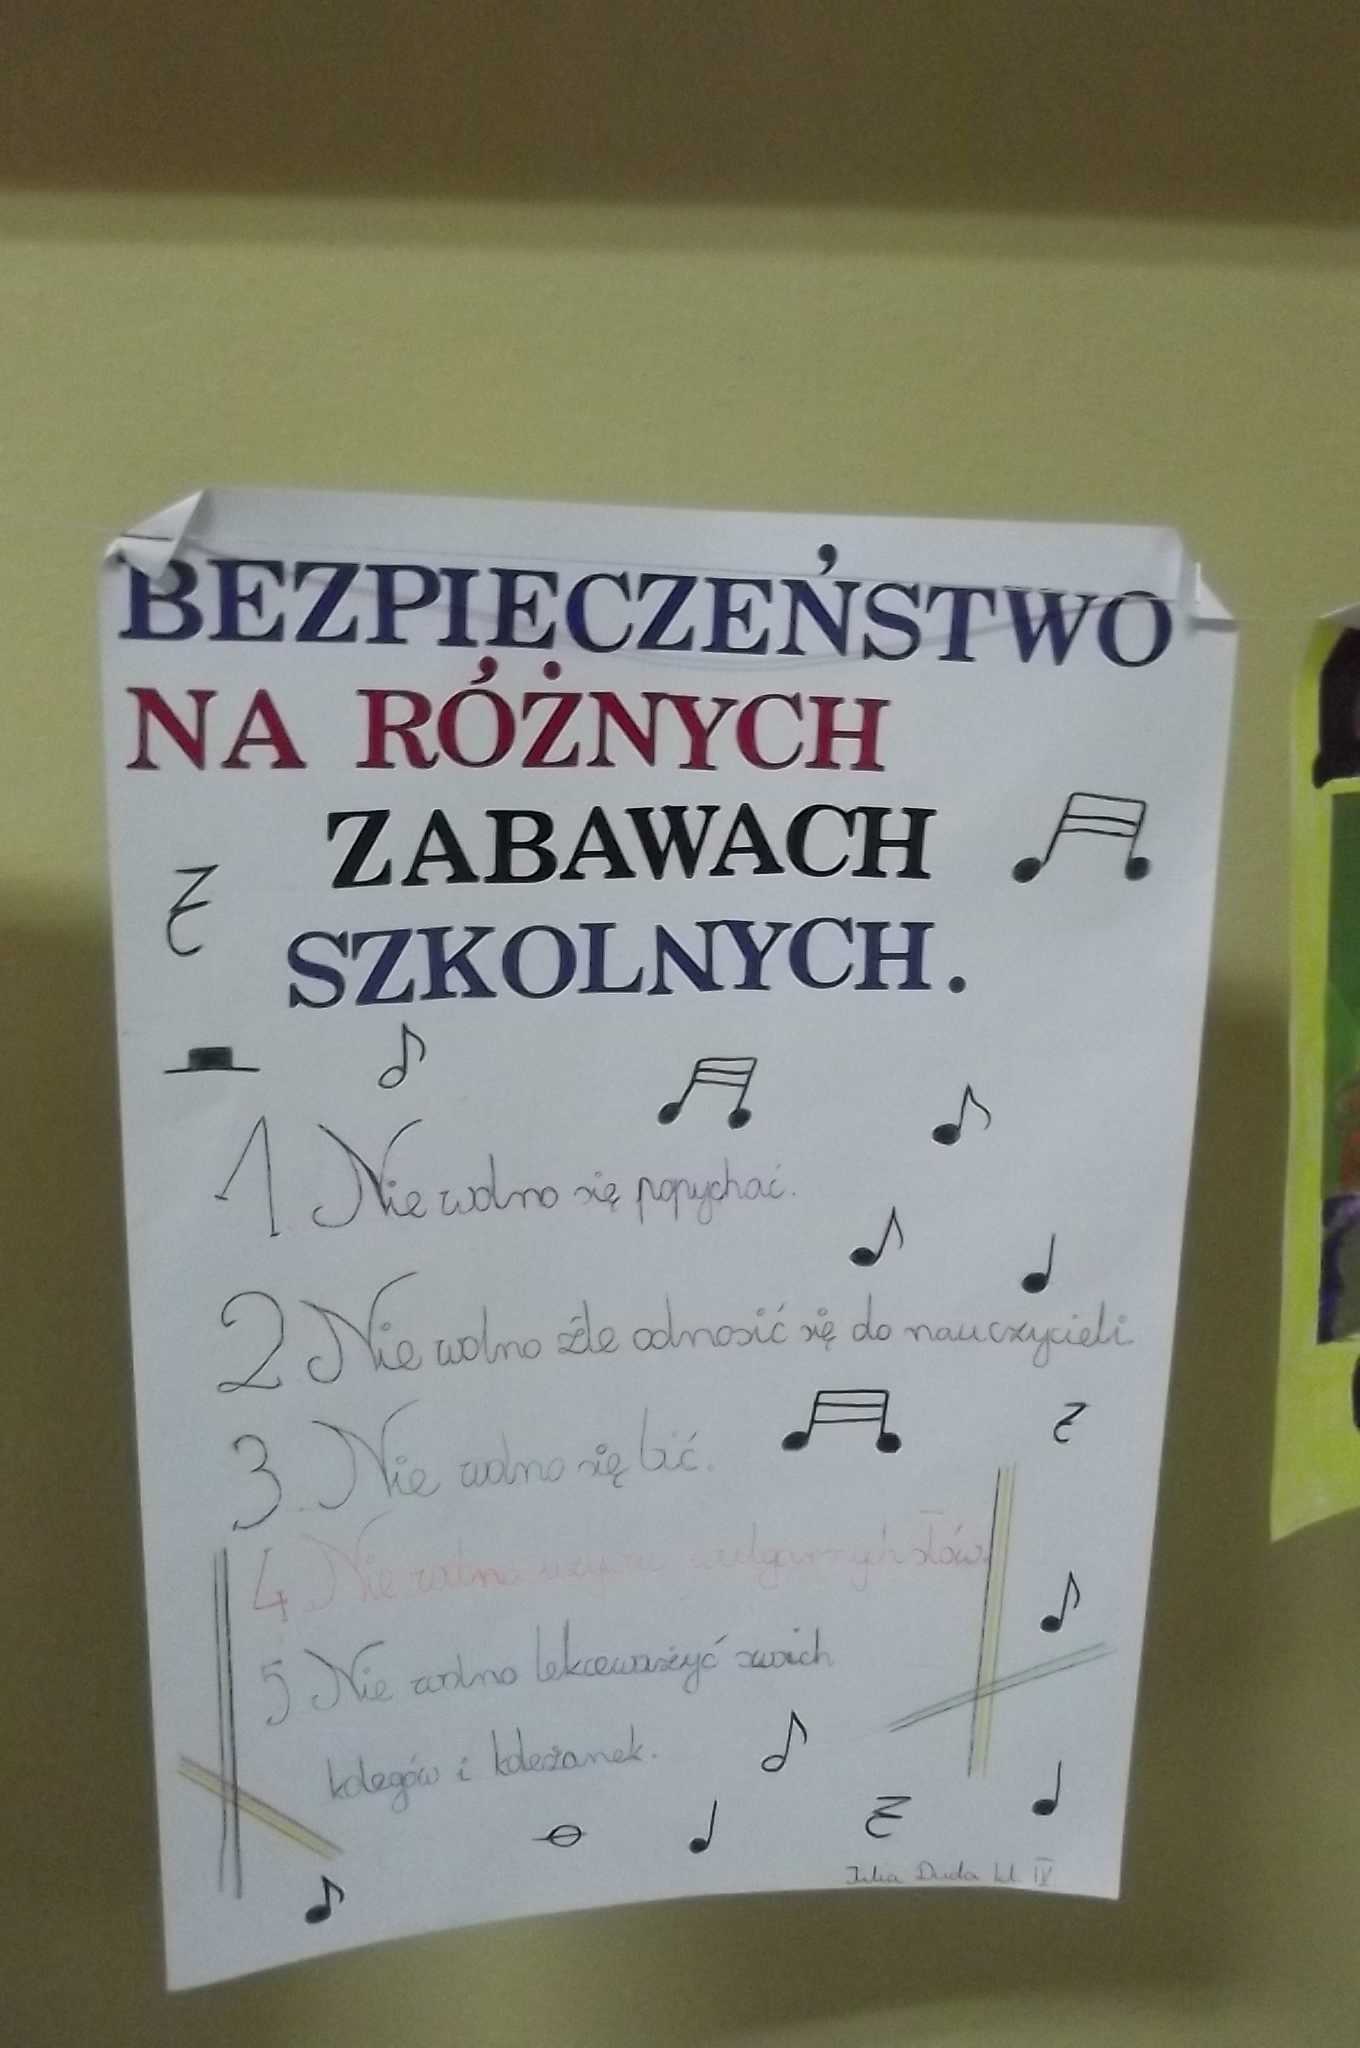 BEZPIECZEŃSTWO
NA RÓŻNYCH
ZABAWACH
SZKOLNYCH.
1. Nie wolno się popychać.
2 Nie wolno źle odnosić się do nauczycieli
3. Nie wolno się bić.
4 Nie wolno wulgarnych słów
5 Nie wolno lekceważyć swoich
kolegów i koleżanek.
Julia Duda kl. IV